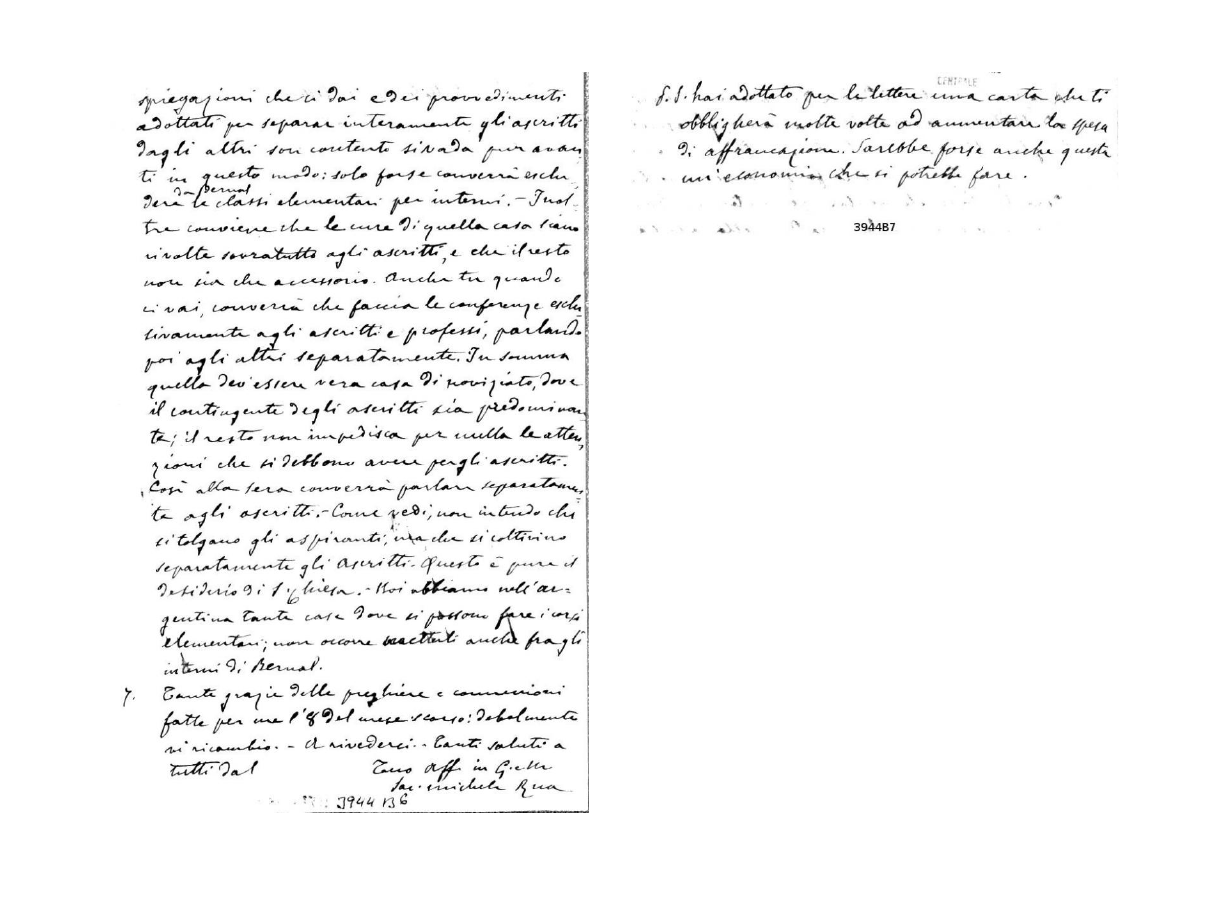 spiegazioni che ci dai e dei provvedimenti
adottati per separar interamente gli ascritti
dagli altri son contento si vada pur avan
ti in questo modo: solo forse converrà esclu
da Bernal
dere le classi elementari per interni. - Inol-
tre conviene che le cure di quella casa siano
rivolte sovratutto agli ascritti, e che il resto
non sia che accessorio. Anche tu quando
ci vai, converrà che faccia le conferenze esclu
sivamente agli ascritti e professi, parlando
poi agli altri separatamente. In somma
quella dev'essere vera casa di noviziato, dove
il contingente degli ascritti sia predominan
te; il resto non impedisca per nulla le atten
zioni che si debbono avere per gli ascritti.
Così alla sera converrà parlare separatamen
te agli ascritti. - Come vedi, non intendo che
si tolgano gli aspiranti, ma che si coltivino
separatamente gli ascritti. Questo è pure il
desiderio di S. Chiesa. - Noi abbiamo nell'ar=
gentina tante case dove si possono fare i corsi
elementari; non occorre metterli anche fra gli
interni di Bernal.
7. Tante grazie delle preghiere e comunioni
fatte per me l'8 del mese scorso: debolmente
vi ricambio. - A rivederci. - Tanti saluti a
tutti dal Tuo Aff. in G. e M.
Sac. Michele Rua
3944 B6
CENTRALE
P.S. hai adottato per le lettere una carta che ti
obbligherà molte volte ad aumentare la spesa
di affrancazione. Sarebbe forse anche questa
un'economia che si potrebbe fare.
3944B7